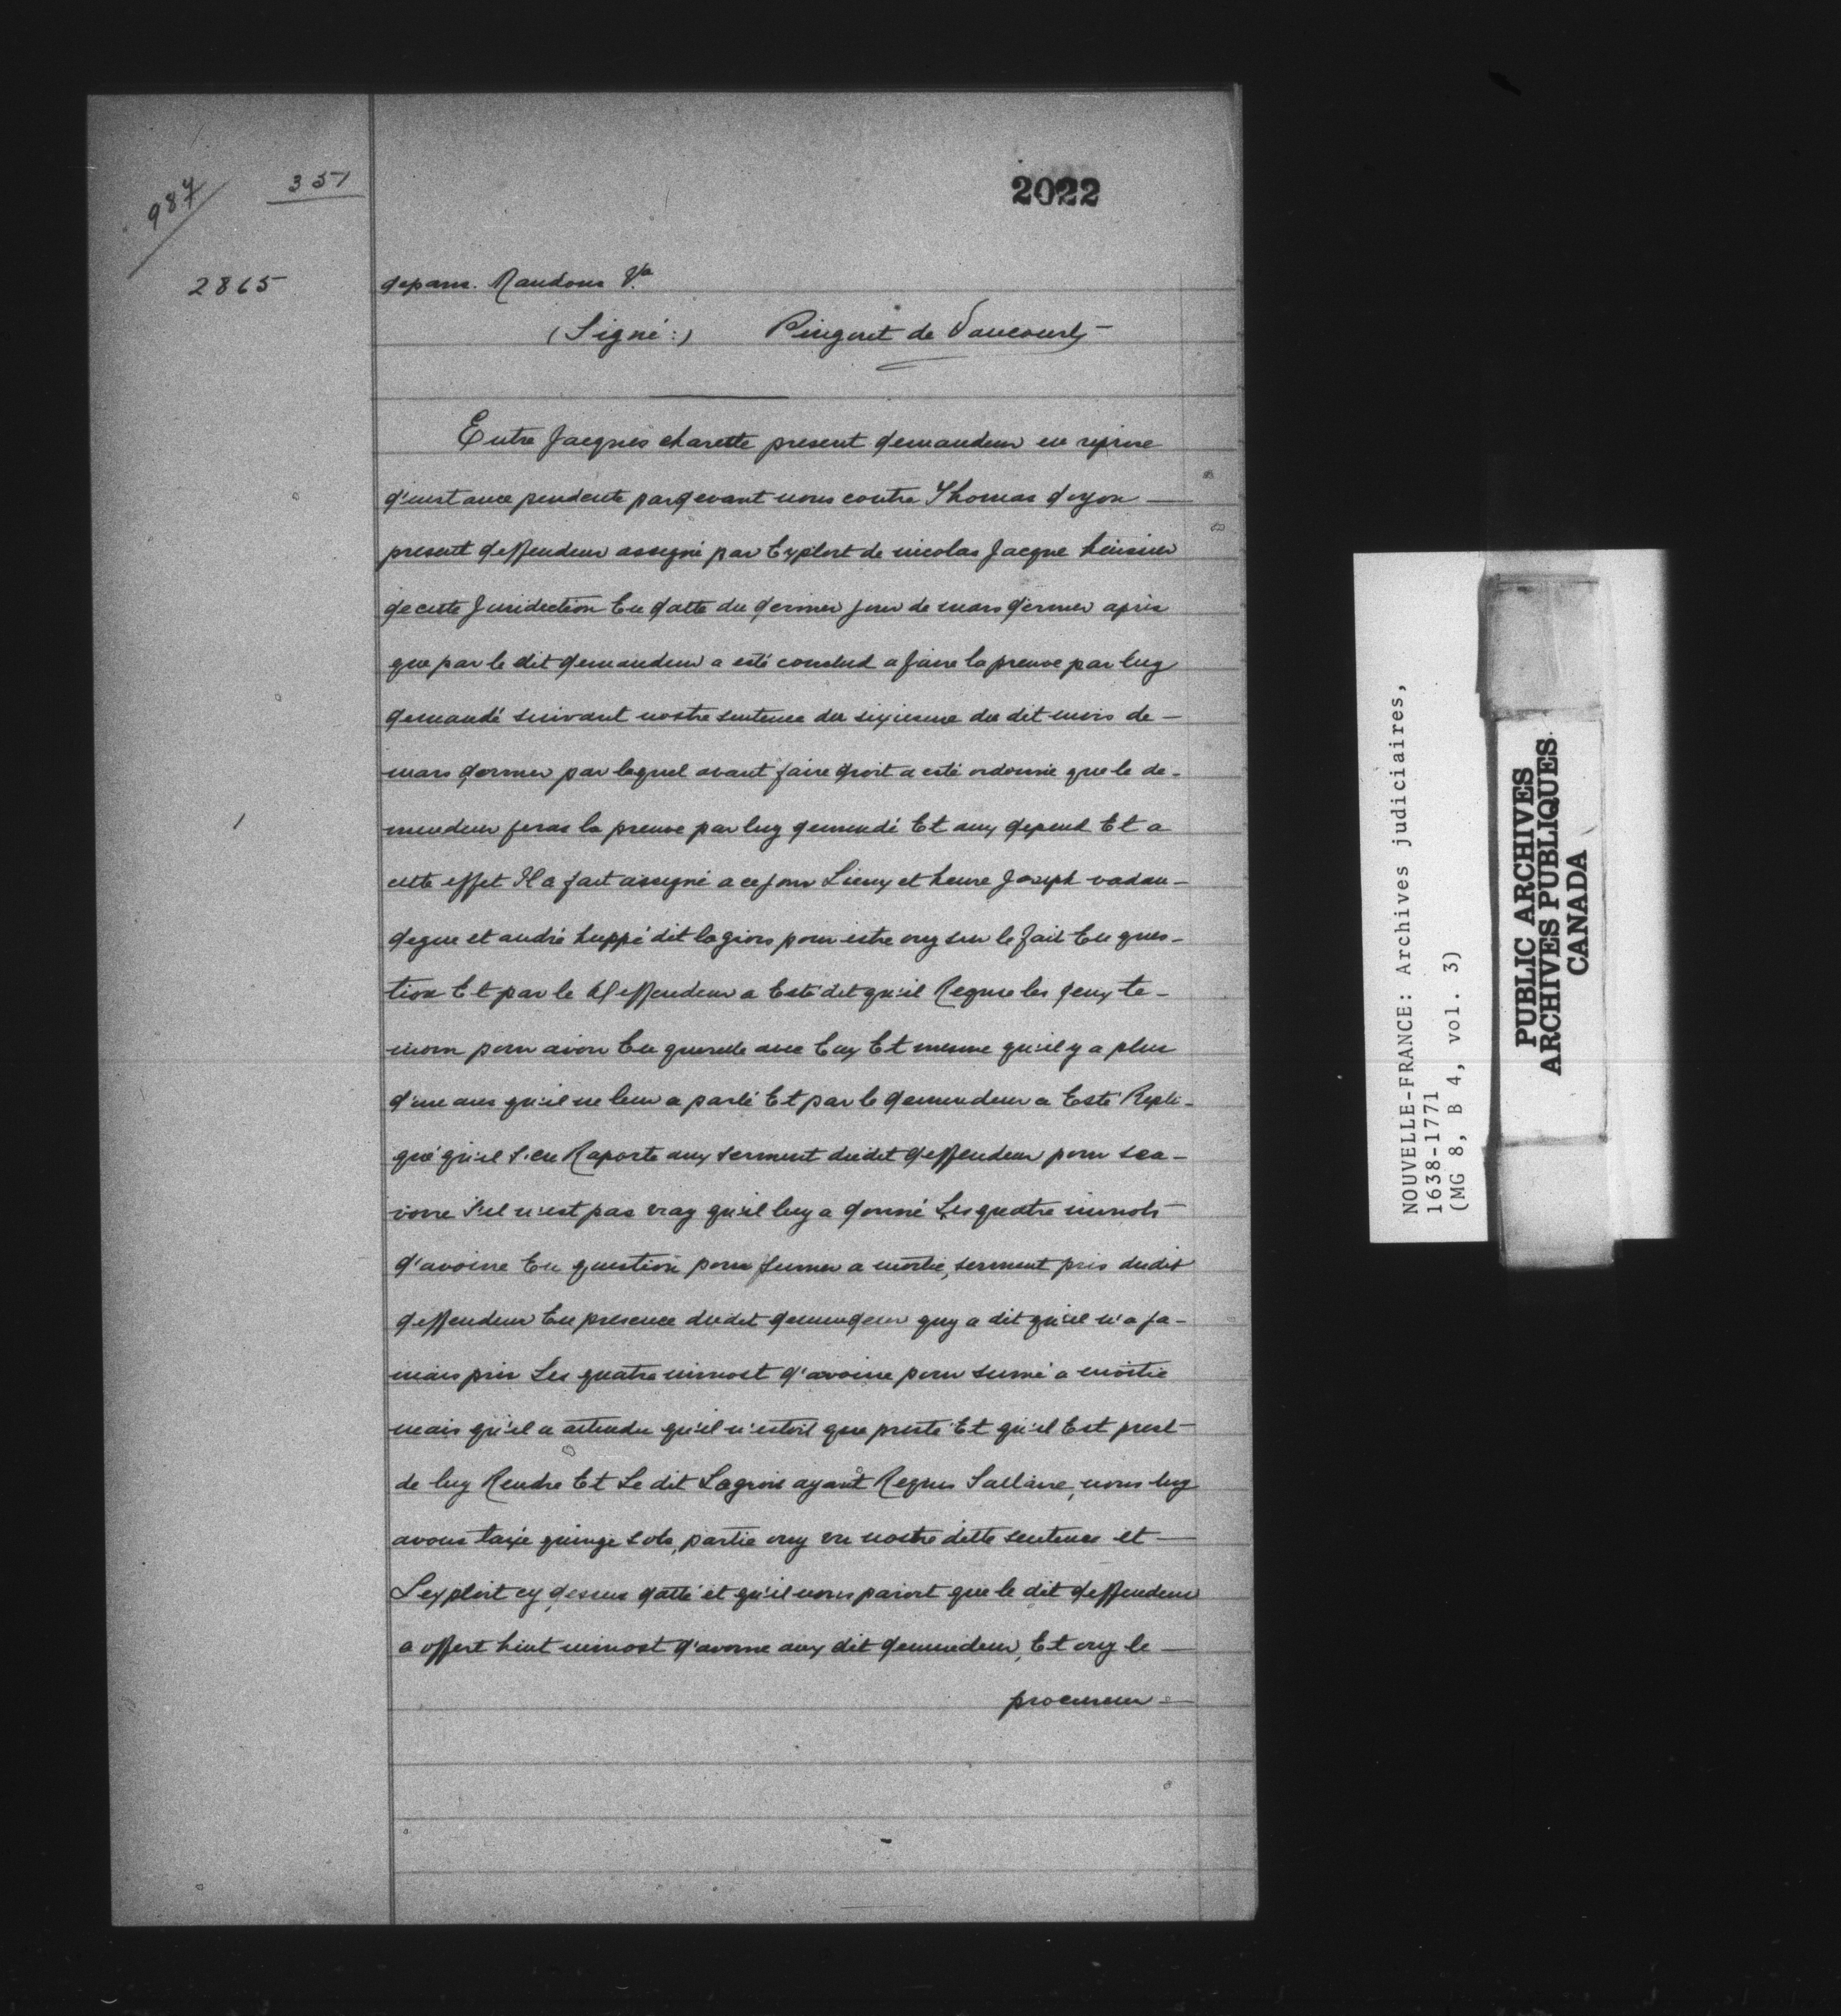 987
351
2022
2865
depans. Mandons &a
(Signé:) Pinguet de Vaucourt
Entre Jacques charette present demandeur en reprise
d'instance pendente pardevant nous contre Thomas doyon —
present deffendeur assigné par Exploit de nicolas Jacque huissier
de cette Juridiction En datte du dernier jour de mars dernier apres
que par le dit demandeur a esté conclud a faire la preuve par luy
demandé suivant nostre sentence du sixiesme du dit mois de —
mars dernier par lequel avant faire droit a esté ordonné que le de-
mendeur feras la preuve par luy demendé Et aux depend Et a
cette effet Il a fait assigné a ce jour Lieux et heure Joseph vadau-
degne et andré huppé dit lagrois pour estre ouy sur le fait En ques-
tion Et par le deffendeur a Esté dit qu'il Recuse les deux te-
moin pour avoir Eu querelle avec Eux Et mesme qu'il y a plus
d'une ans qu'il ne leur a parlé Et par le demendeur a Esté Repli-
qué qu'il s'en Raporte aux serment dudit deffendeur pour sca-
voire s'il n'est pas vray qu'il luy a donné Les quatre minots
d'avoine En question pour semer a moitié, serment pris dudit
deffendeur En presence dudit demendeur quy a dit qu'il n'a ja-
mais pris Les quatre minost d'avoine pour sumé a moitié
mais qu'il a attendu qu'il n'estoit que presté Et qu'il Est prest
de luy Rendre Et Le dit Lagrois ayant Requis Sallaire, nous luy
avons taxé quinze sols, partie ouy vu nostre ditte sentence et —
L'exploit cy dessus datté et qu'il nous paroit que le dit deffendeur
a offert huit minost d'avoine aux dit demendeur, Et ouy le —
procureur —
NOUVELLE-FRANCE: Archives judiciaires,
1638-1771
(MG 8, B 4, vol. 3)
PUBLIC ARCHIVES
ARCHIVES PUBLIQUES
CANADA